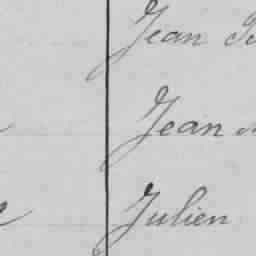 Jean
Jean
Julien